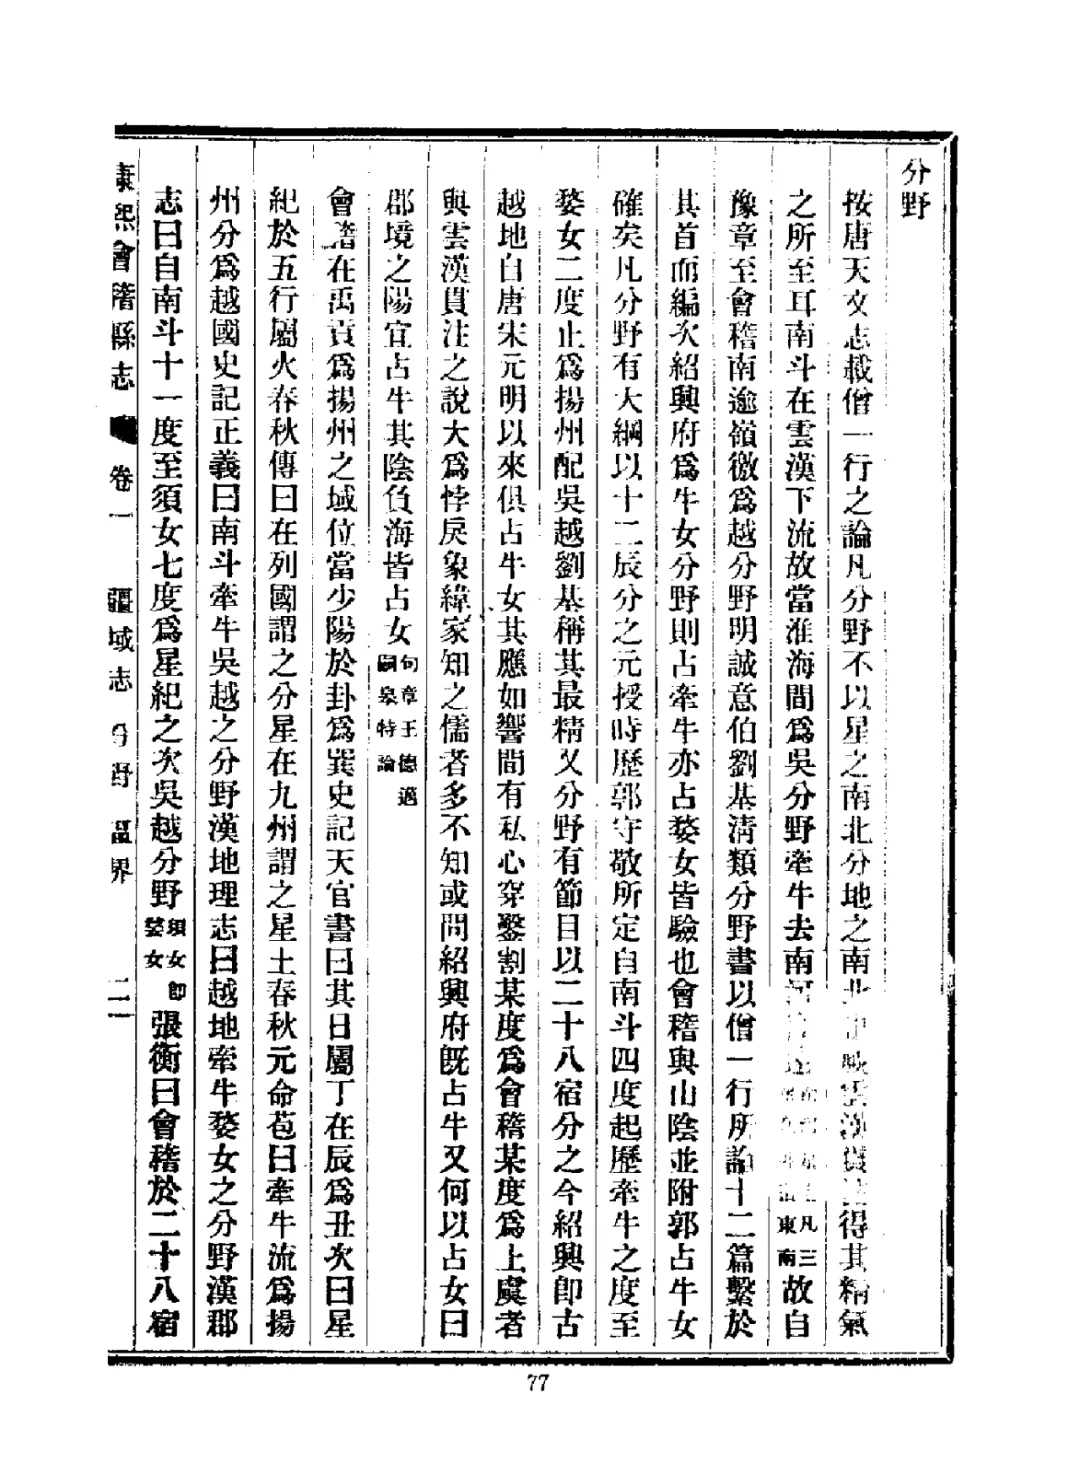 分野
按唐天文志載僧一行之論凡分野不以星之南北分地之南北中或雲漢貫注得其精氣
之所至耳南斗在雲漢下流故當淮海間爲吳分野牽牛去南河 凡三 東南故自
豫章至會稽南逾嶺徼爲越分野明誠意伯劉基淸類分野書以僧一行所論十二篇繫於
其首而編次紹興府爲牛女分野則占牽牛亦占婺女皆驗也會稽與山陰並附郭占牛女
確矣凡分野有大綱以十二辰分之元授時歷郭守敬所定自南斗四度起歷牽牛之度至
婺女二度止爲揚州配吳越劉基稱其最精又分野有節目以二十八宿分之今紹興卽古
越地自唐宋元明以來俱占牛女其應如響間有私心穿鑿割某度爲會稽某度爲上虞者
與雲漢貫注之說大爲悖戾象緯家知之儒者多不知或問紹興府旣占牛又何以占女曰
郡境之陽宜占牛其陰負海皆占女句章王德邁嗣臯特論
會稽在禹貢爲揚州之域位當少陽於卦爲巽史記天官書曰其日屬丁在辰爲丑次曰星
紀於五行屬火春秋傳曰在列國謂之分星在九州謂之星土春秋元命苞曰牽牛流爲揚
州分爲越國史記正義曰南斗牽牛吳越之分野漢地理志曰越地牽牛婺女之分野漢郡
志曰自南斗十一度至須女七度爲星紀之次吳越分野須女卽婺女張衡曰會稽於二十八宿
康熙會稽縣志 卷一 疆域志 分野 區界 二
77